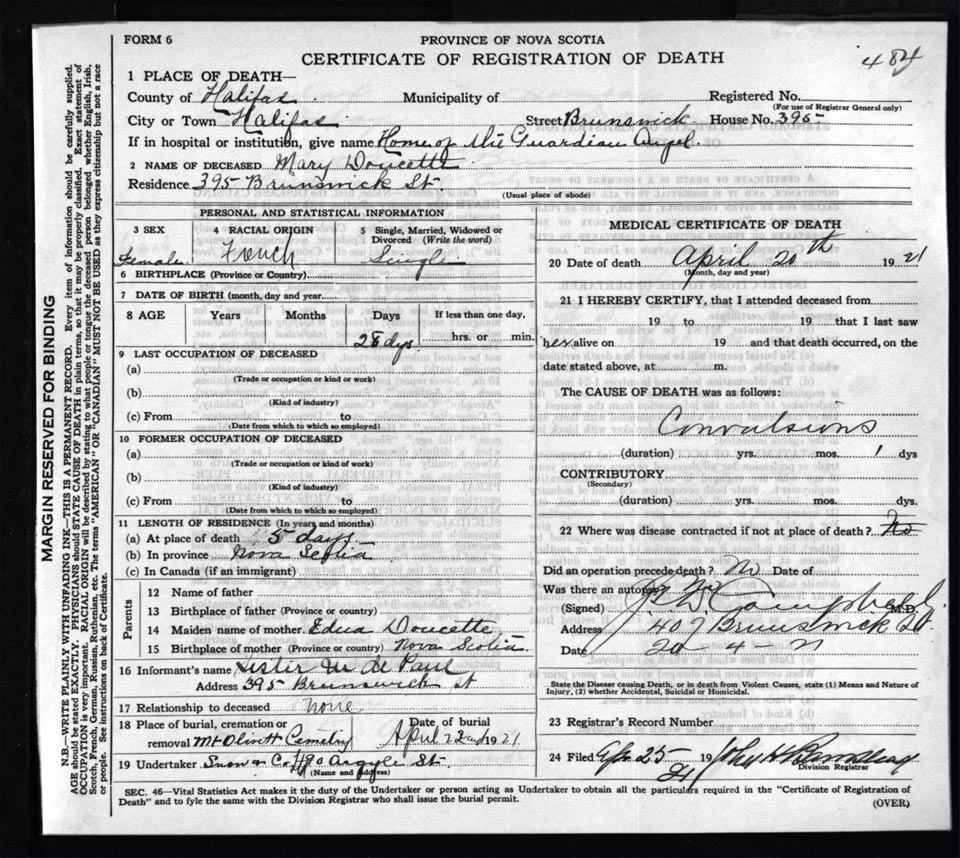 484
FORM 6
PROVINCE OF NOVA SCOTIA
CERTIFICATE OF REGISTRATION OF DEATH
1 PLACE OF DEATH—
County of Halifax Municipality of Registered No.
(For use of Registrar General only)
City or Town Halifax Street Brunswick House No. 395
If in hospital or institution, give name Home of the Guardian Angel
2 NAME OF DECEASED Mary Doucette
Residence 395 Brunswick St.
(Usual place of abode)
PERSONAL AND STATISTICAL INFORMATION
3 SEX 4 RACIAL ORIGIN 5 Single, Married, Widowed or Divorced (Write the word)
Female French Single
6 BIRTHPLACE (Province or Country)
7 DATE OF BIRTH (month, day and year)
8 AGE Years Months Days If less than one day,
28 dys. hrs. or min.
9 LAST OCCUPATION OF DECEASED
(a)
(Trade or occupation or kind or work)
(b)
(Kind of industry)
(c) From to
(Date from which to which so employed)
10 FORMER OCCUPATION OF DECEASED
(a)
(Trade or occupation or kind of work)
(b)
(Kind of industry)
(c) From to
(Date from which to which so employed)
11 LENGTH OF RESIDENCE (In years and months)
(a) At place of death 5 days
(b) In province Nova Scotia
(c) In Canada (if an immigrant)
Parents
12 Name of father
13 Birthplace of father (Province or country)
14 Maiden name of mother Edna Doucette
15 Birthplace of mother (Province or country) Nova Scotia
16 Informant's name Sister M de Paul
Address 395 Brunswick st
17 Relationship to deceased none
18 Place of burial, cremation or removal Mt Olivett Cemetry Date of burial April 22nd 1921
19 Undertaker Snow & Co 90 Argyle St.
(Name and address)
MEDICAL CERTIFICATE OF DEATH
20 Date of death April 20th 1921
(Month, day and year)
21 I HEREBY CERTIFY, that I attended deceased from
19 to 19 that I last saw
her alive on 19 and that death occurred, on the
date stated above, at m.
The CAUSE OF DEATH was as follows:
Convulsions
(duration) yrs. mos. 1 dys
CONTRIBUTORY
(Secondary)
(duration) yrs. mos. dys.
22 Where was disease contracted if not at place of death? No
Did an operation precede death? No Date of
Was there an autopsy? No
(Signed) Campbell M.D.
Address 407 Brunswick St.
Date 20-4-21
State the Disease causing Death, or in death from Violent Causes, state (1) Means and Nature of
Injury, (2) whether Accidental, Suicidal or Homicidal.
23 Registrar's Record Number
24 Filed Apr 25 1921 John H
Division Registrar
SEC. 46—Vital Statistics Act makes it the duty of the Undertaker or person acting as Undertaker to obtain all the particulars required in the "Certificate of Registration of
Death" and to fyle the same with the Division Registrar who shall issue the burial permit.
(OVER)
MARGIN RESERVED FOR BINDING
N.B.—WRITE PLAINLY WITH UNFADING INK—THIS IS A PERMANENT RECORD. Every item of information should be carefully supplied.
AGE should be stated EXACTLY. PHYSICIANS should STATE CAUSE OF DEATH in plain terms, so that it may be properly classified. Exact statement of
OCCUPATION is very important. RACIAL ORIGIN will be described by stating to what people or tongue the deceased person belonged, whether English, Irish,
Scotch, French, German, Russian, Ruthenian, etc. The terms "AMERICAN" or "CANADIAN" MUST NOT BE USED as they express citizenship but not a race
or people. See instructions on back of Certificate.